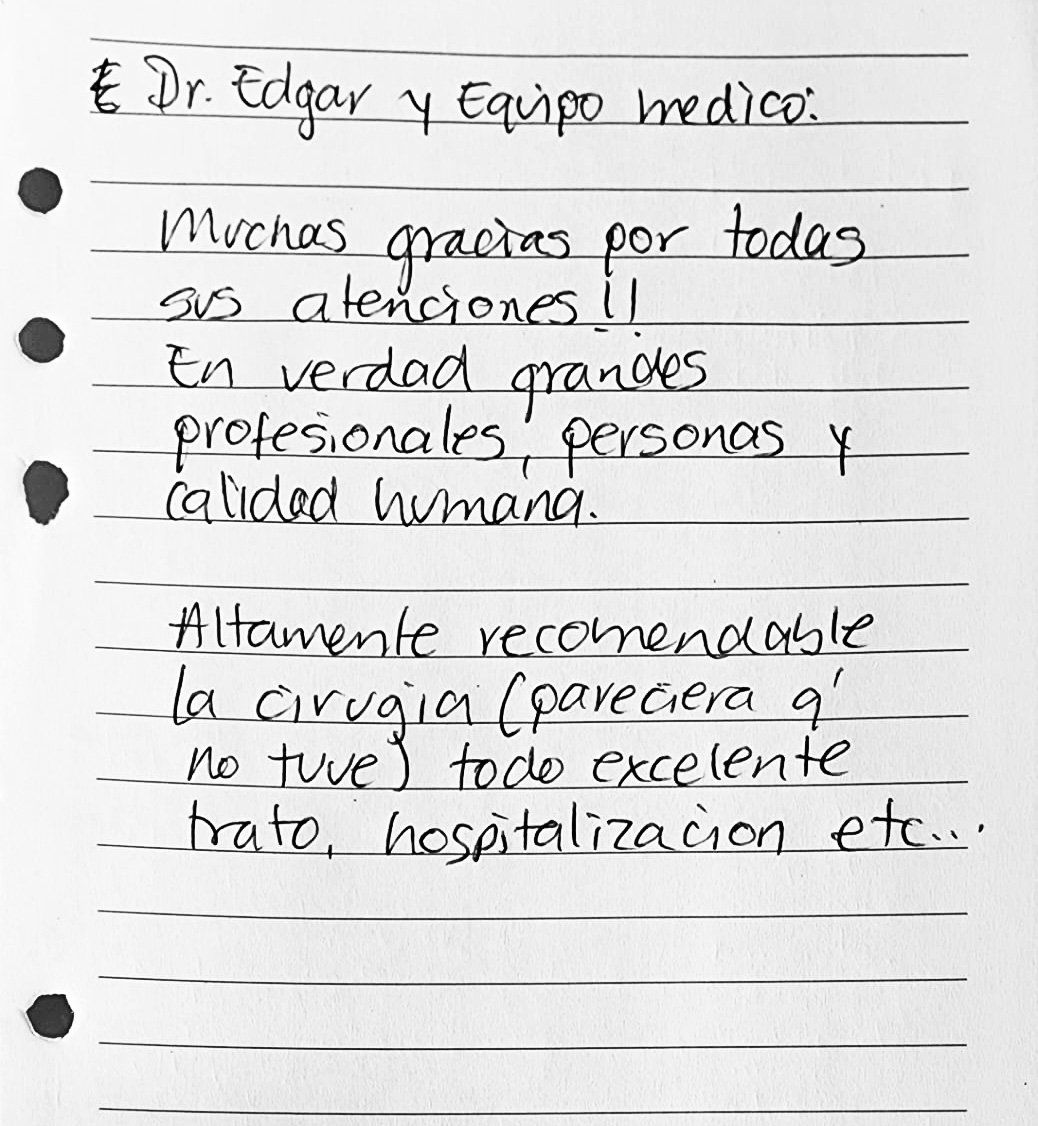 E Dr. Edgar y Equipo medico:
Muchas gracias por todas
sus atenciones!!
En verdad grandes
profesionales, personas y
calidad humana.
Altamente recomendable
la cirugia (pareciera q'
no tuve) todo excelente
trato, hospitalizacion etc...